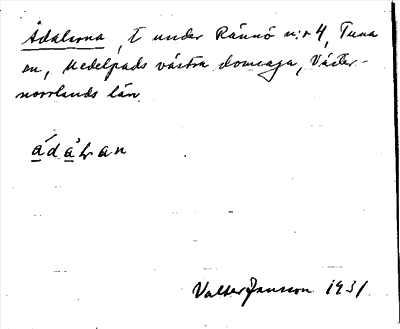 Ådalarna, t under Rännö n:r 4, Tuna
sn, Medelpads västra domsaga, Väster-
norrlands län.
ådalan
Valter Jansson 1931